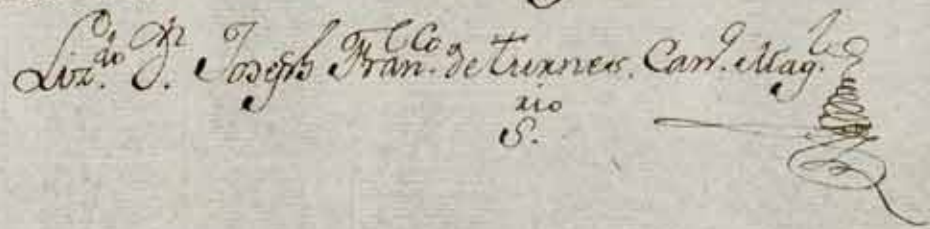 Liz.do D.n Joseph Fran.co de Turnes. Can.o Mag.l
rio
S.